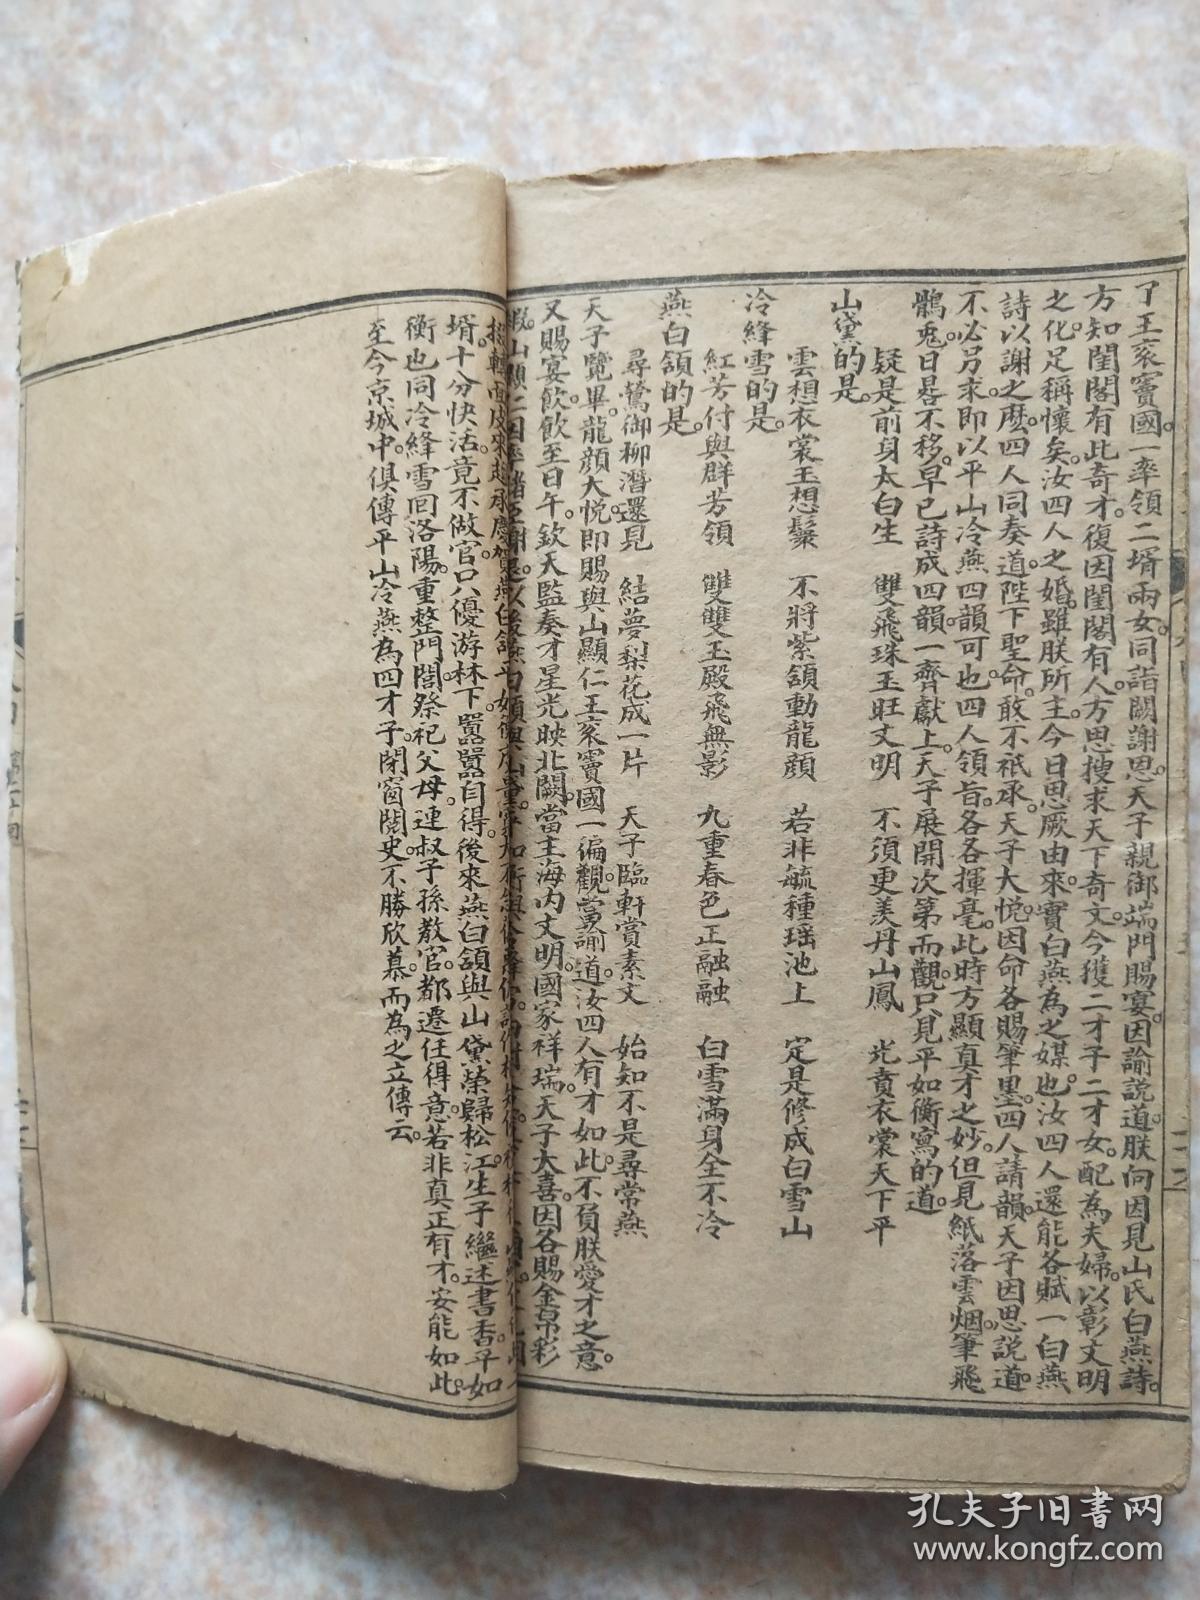 了王袞竇國一率領二壻兩女同詣闕謝恩天子親御端門賜宴因諭說道朕向因見山氏白燕詩
方知閨閣有此奇才復因閨閣有人方思搜求天下奇文今獲二才子二才女配為夫婦以彰文明
之化足稱懷矣汝四人之婚雖朕所主今日思厥由來實白燕為之媒也汝四人還能各賦一白燕
詩以謝之麽四人同奏道陛下聖命敢不祇承天子大悅因命各賜筆墨四人請韻天子因思說道
不必另求即以平山冷燕四韻可也四人領旨各各揮毫此時方顯真才之妙但見紙落雲烟筆飛
鶻兎日晷不移早已詩成四韻一齊獻上天子展開次第而觀只見平如衡寫的道
疑是前身太白生 雙飛珠玉旺文明 不須更羨丹山鳳 光賁衣裳天下平
山黛的是
雲想衣裳玉想鬟 不將紫頷動龍顏 若非毓種瑶池上 定是修成白雪山
冷絳雪的是
紅芳付與群芳領 雙雙玉殿飛無影 九重春色正融融 白雪滿身全不冷
燕白頷的是
尋鶯御柳潛還見 結夢梨花成一片 天子臨軒賞素文 始知不是尋常燕
天子覽畢龍顏大悅即賜與山顯仁王袞竇國一偏觀當諭道汝四人有才如此不負朕愛才之意
又賜宴飲飲至日午欽天監奏才星光映北闕當主海内文明國家祥瑞天子大喜因各賜金帛彩
緞山顯仁因率諸臣謝退以後燕白頷與山黛
面皮來趨承慶賀燕白頷平如衡
壻十分快活竟不做官只優游林下囂囂自得後來燕白頷與山黛榮歸松江生子繼述書香平如
衡也同冷絳雪囘洛陽重整門閭祭祀父母連叔子孫教官都遷任得意若非真正有才安能如此
至今京城中俱傳平山冷燕為四才子閉窗閱史不勝欣慕而為之立傳云
孔夫子旧书网
www.kongfz.com